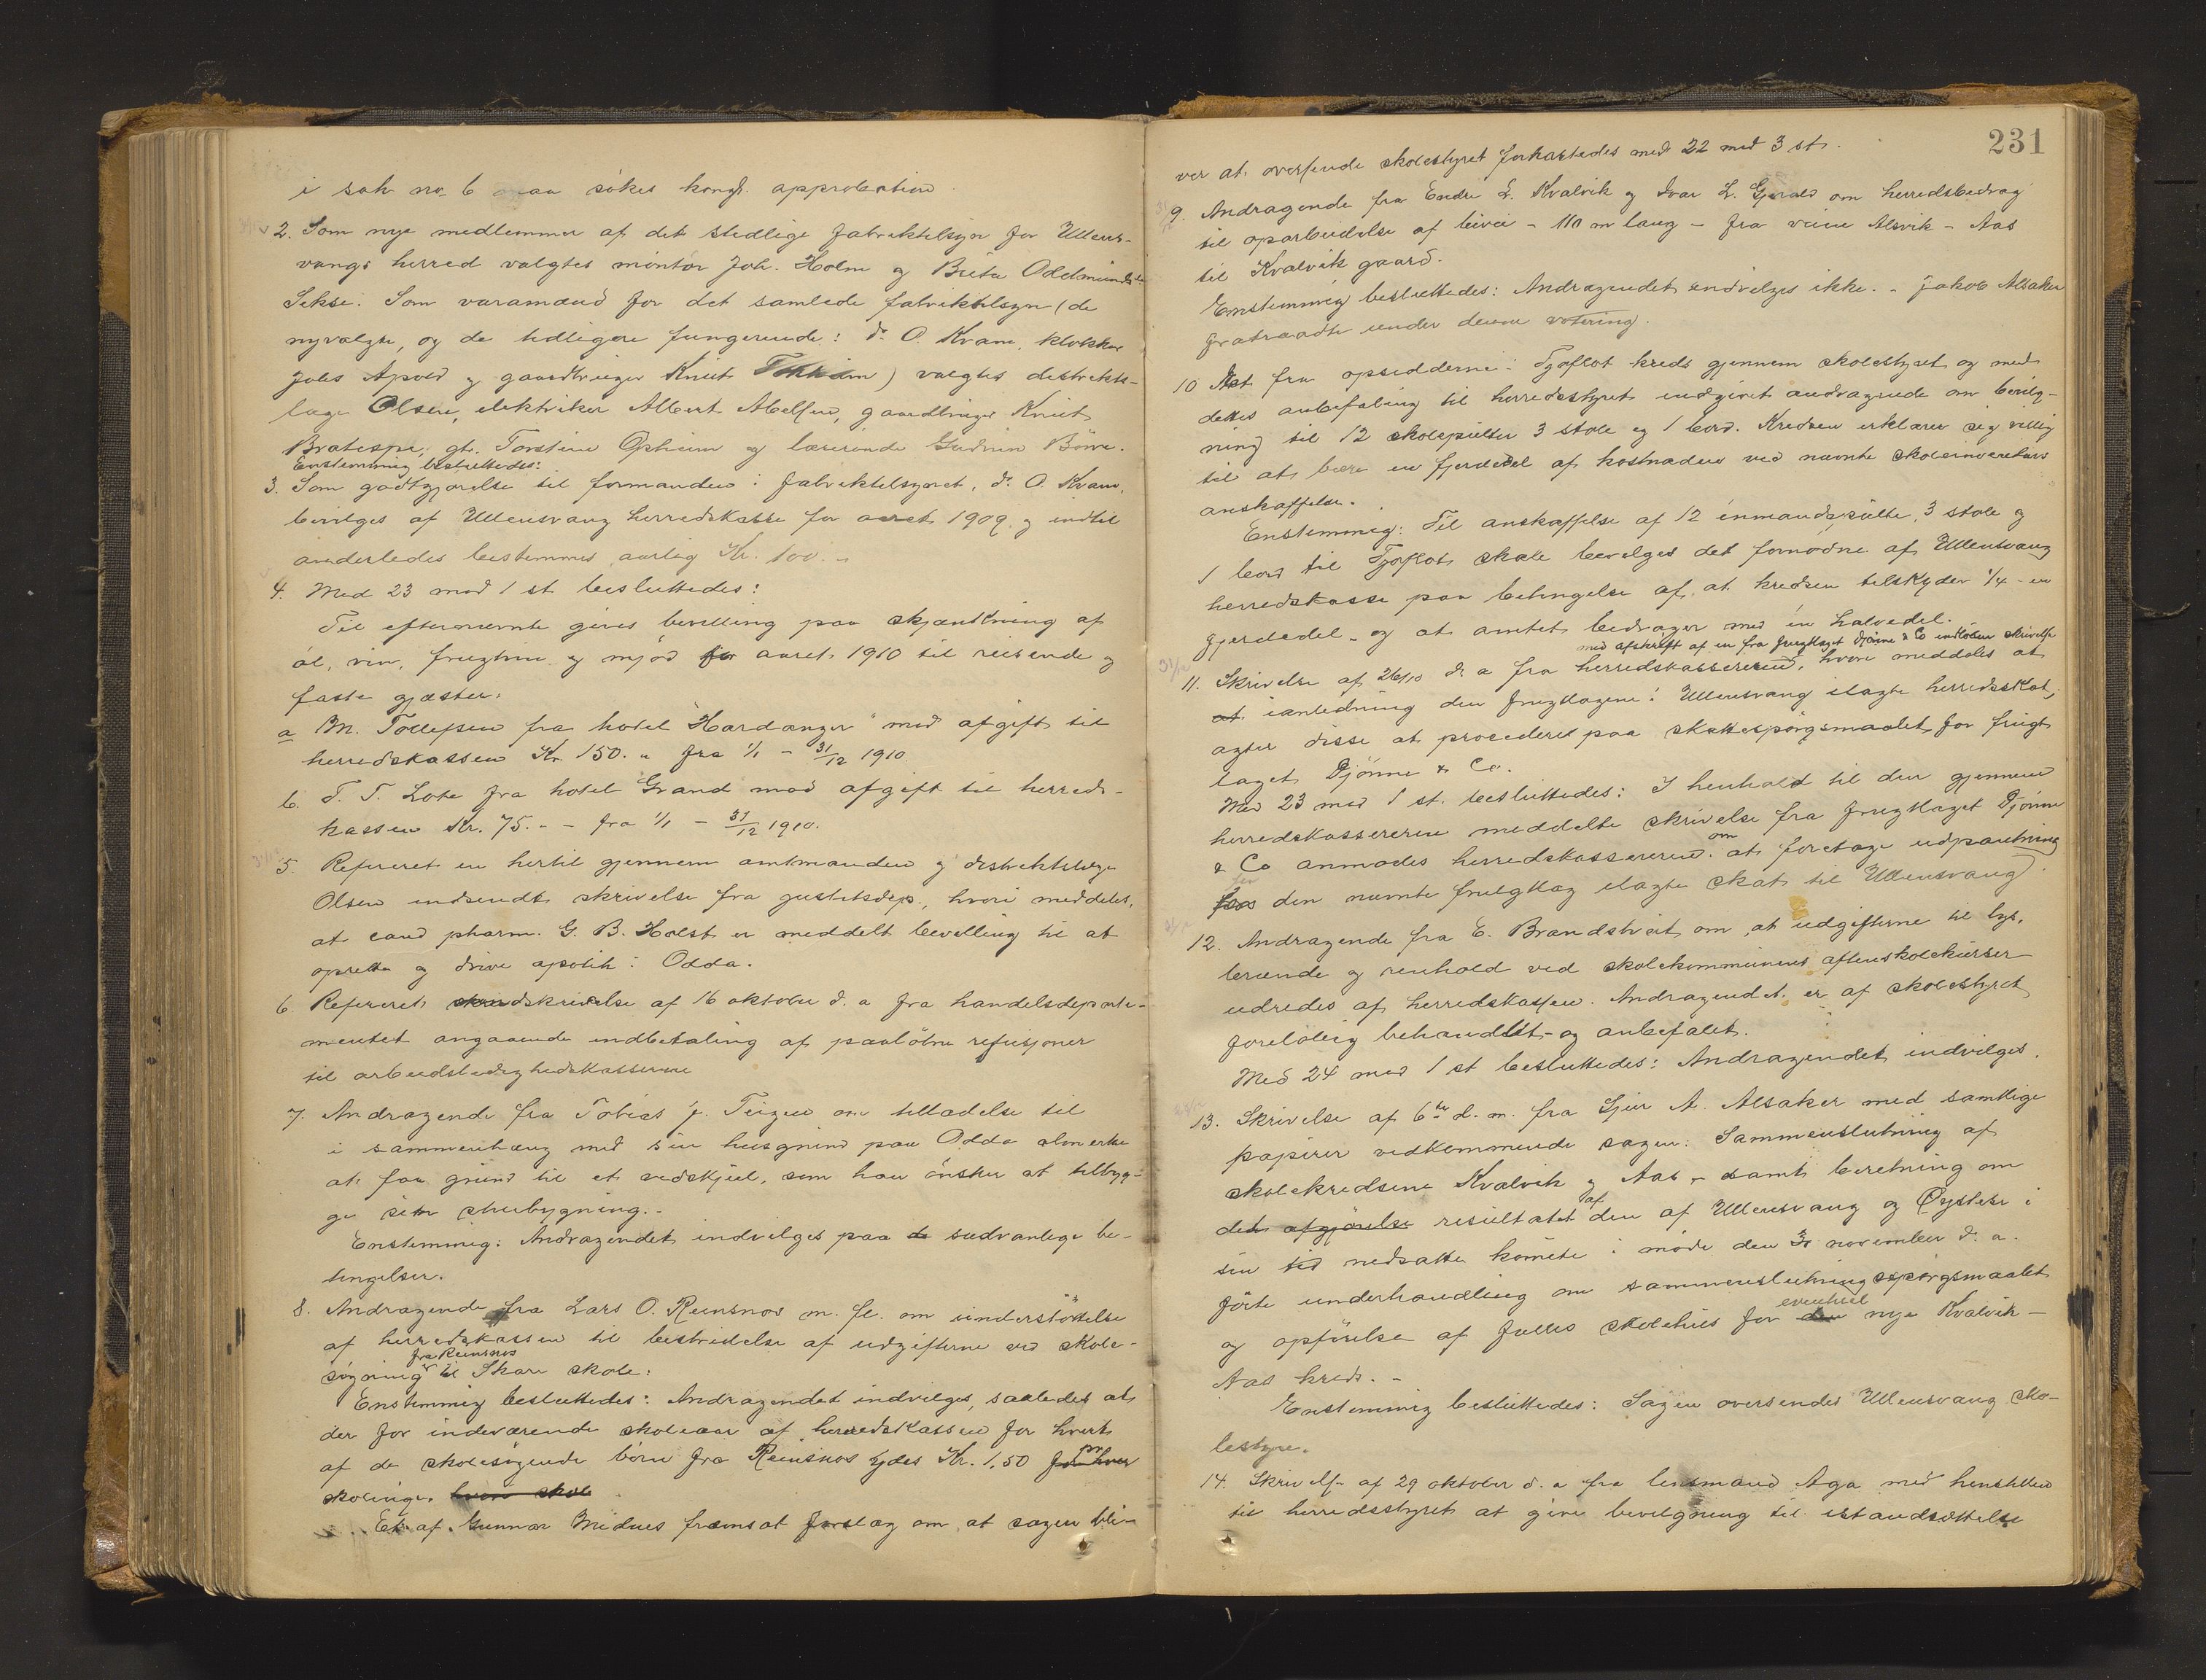 i sak no 6 maa søkes kongl. approbation.
2. Som nye medlemmer af det stedlige fabriktilsyn for Ullens-
vangs herred valgtes montør Joh. Holm og Brita Oddmundsd.
Sekse. Som varamænd for det samlede fabriktilsyn (de
nyvalgte, og de tidligere fungerende: dr. O. Kvam, klokker
Johs Apold og gaardbruger Knut Tokheim) valgtes distrikts-
læge Olsen, elektriker Albert Abelsen, gaardbruger Knut
Bratespe, gb. Torstein Opheim og lærerinde Gudrun Børve.
Enstemmig besluttedes:
3. Som godtgjørelse til formanden i fabriktilsynet, dr. O. Kvam,
bevilges af Ullensvang herredskasse for aaret 1909 og indtil
anderledes bestemmes aarlig Kr. 100.-
4. Med 23 mod 1 st besluttedes:
Til efternævnte gives bevilling paa skjænkning af
øl, vin, frugtvin og mjød for aaret 1910 til reisende og
faste gjæster:
a M. Tollefsen fra hotel "Hardanger" mod afgift til
herredskassen Kr 150.- fra 1/1 - 31/12 1910.
b. T. T. Lote fra hotel Grand mod afgift til herreds-
kassen Kr. 75.- - fra 1/1 - 31/12 1910.
5. Refereret en hertil gjennem amtmanden og distriktslæge
Olsen indsendt skrivelse fra justitsdep., hvori meddeles,
at cand pharm. G. B. Holst er meddelt bevilling til at
oprette og drive apotek i Odda.
6. Refereret skrivelse af 16 oktober d. a fra handelsdeparte-
mentet angaaende indbetaling af paaløbne refusjoner
til arbeidsledighedskasserne
7. Andragende fra Tobias J. Teigen om tilladelse til
i sammenhæng med sin husgrund paa Odda almenke
at faa grund til et vedskjul, som han ønsker at tilbyg-
ge sin stuebygning.-
Enstemmig: Andragendet indvilges paa de sedvanlige be-
tingelser.
8. Andragende fra Lars O. Reinsnos m. fl. om understøttelse
af herredskassen til bestridelse af udgifterne ved skole-
fra Reinsnos
søgning til Skare skole:
Enstemmig besluttedes: Andragendet indvilges, saaledes at
der for indeværende skoleaar af herredskassen for hvert
af de skolesøgende børn fra Reinsnos ydes Kr. 1.50 for hver pr
skoleuge. hvori skol
Et af Gunnar Midnes fremsat forslag om, at sagen bliver
231
ver at oversende skolestyret forkastedes med 22 mod 3 st.
9. Andragende fra Endre L. Kvalvik og Ivar L. Gjerald om herredsbedrag
til oparbeidelse af bivei - 110 m lang - fra veien Alsvik - Aas
til Kvalvik gaard.
Enstemmig besluttedes: Andragendet indvilges ikke. - Jakob Alsaker
fratraadte under denne votering.
10 Et fra opsidderne i Tjoflot kreds gjennem skolestyret og med
dettes anbefaling til herredsstyret indgivet andragende om bevilg-
ning til 12 skolepulter 3 stole og 1 bord. Kredsen erklærer sig villig
til at bære en fjerdedel af kostnaden ved nævnte skoleinventars
anskaffelse.
Enstemmig: Til anskaffelse af 12 enmandspulte, 3 stole og
1 bord til Tjoflot skole bevilges det fornødne af Ullensvang
herredskasse paa betingelse af, at kredsen tilskyder 1/4 - en
fjerdedel - og at amtet bedrager med en halvedel.
med afskrift af en fra frugtlaget Djønne & Co indløben skrivelse
11. Skrivelse af 26/10 d. a fra herredskassereren, hvori meddeles at
at i anledning den frugtlagene i Ullensvang ilagte herredsskat,
agter disse at procedere paa skattespørgsmaalet for frugt
laget Djønne & Co.
Med 23 mod 1 st. besluttedes: I henhold til den gjennem
herredskassereren meddelte skrivelse fra frugtlaget Djønne
om
& Co anmodes herredskassereren at foretage udpantning
for
fra den nævnte frugtlag ilagte skat til Ullensvang.
12. Andragende fra E. Brandstveit om, at udgifterne til lys,
brænde og renhold ved skolekommunens aftenskolekurser
udredes af herredskassen. Andragendet er af skolestyret
foreløbig behandlet - og anbefalet.
Med 24 mod 1 st besluttedes: Andragendet indvilges.
13. Skrivelse af 6te d. m. fra Sjur A. Alsaker med samtlige
papirer vedkommende sagen: Sammenslutning af
skolekredsene Kvalvik og Aas - samt beretning om
af
det afgjørelse resultatet den af Ullensvang og Øystese i
sin tid nedsatte komite i møde den 3 november d. a.
førte underhandling om sammenslutningsspørgsmaalet
eventuel
og opførelse af fælles skolehus for den nye Kvalvik -
Aas kreds. -
Enstemmig besluttedes: Sagen oversendes Ullensvang sko-
lestyre.
14. Skrivelse af 29 oktober d. a fra lensmand Aga med henstillen
til herredsstyret at give bevilgning til istandsættelse